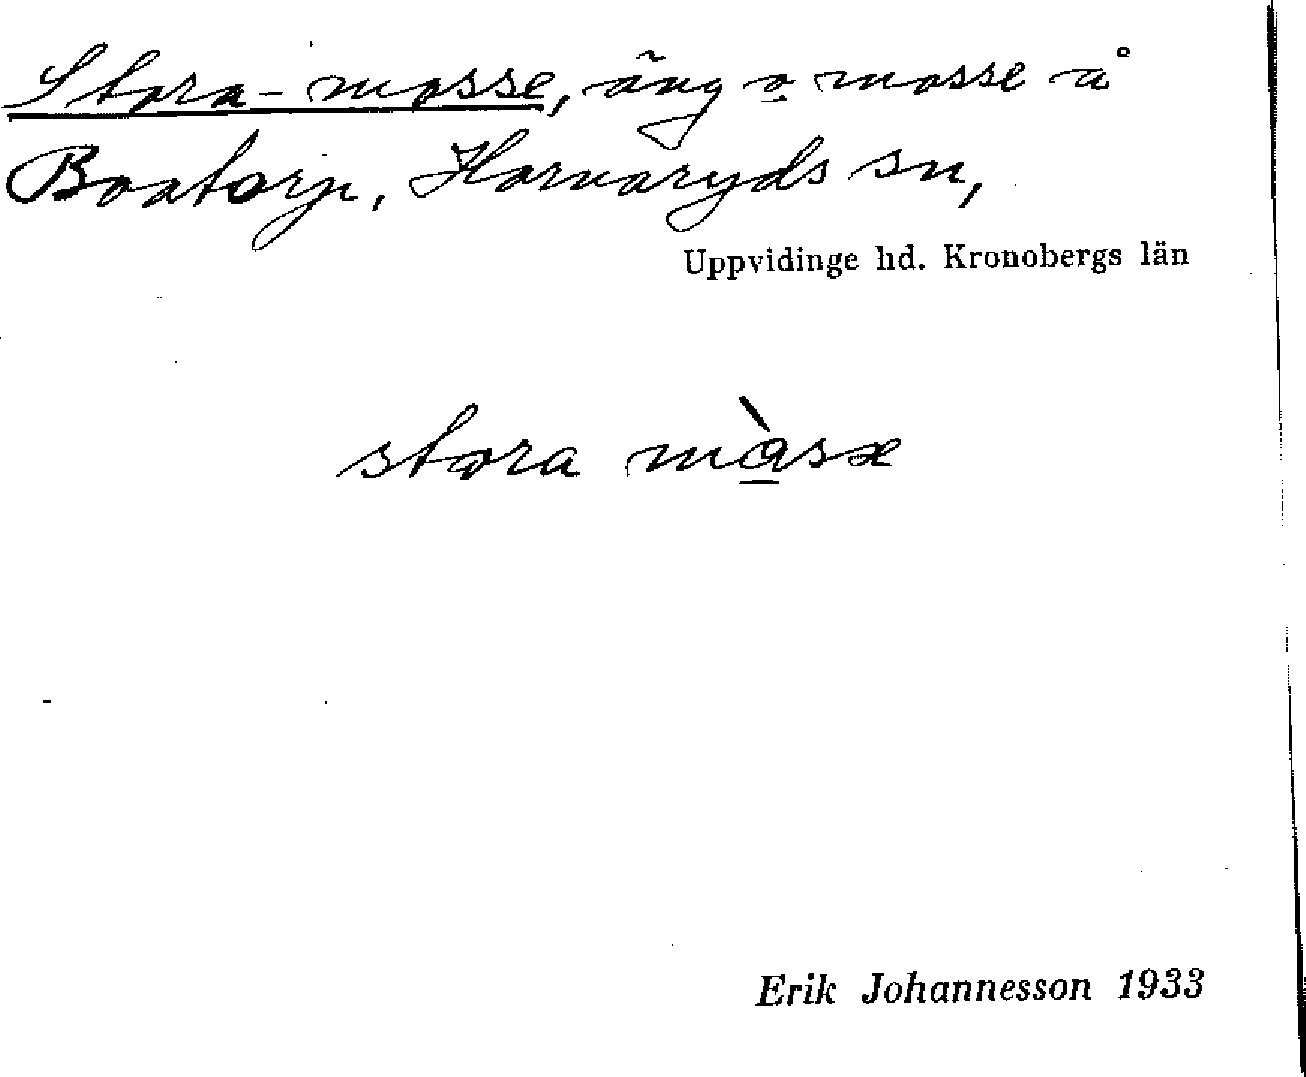 Stora-mosse, äng o mosse å
Boatorp, Hornaryds sn,
Uppvidinge hd. Kronobergs län
stora màsæ
Erik Johannesson 1933